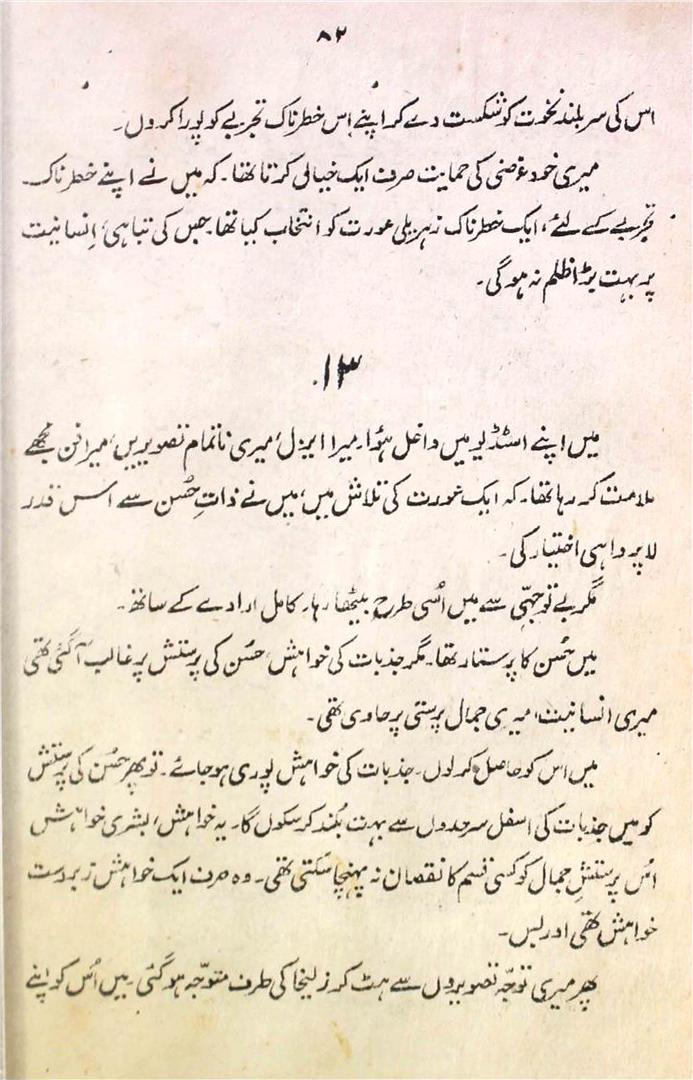 ۸۲
اس کی سربلند نخوت کو شکست دے کر اپنے اِس خطرناک تجربے کو پورا کردوں۔
میری خودغرضی کی حمایت صرف ایک خیالی کرتا تھا۔ کہ میں نے اپنے خطرناک
تجربے کے لئے، ایک خطرناک زہریلی عورت کو انتخاب کیا تھا۔ جس کی تباہی، اِنسانیت
پر بہت بڑا ظلم نہ ہوگی۔
۱۳
میں اپنے اسٹڈیو میں داخل ہؤا۔ میرا ایزل، میری ناتمام تصویریں، میرا فن مجھے
ملامت کر رہا تھا۔ کہ ایک عورت کی تلاش میں، میں نے ذاتِ حُسن سے اس قدر
لاپرواہی اختیار کی۔
مگر بے توجہی سے میں اُسی طرح بیٹھا رہا۔ کامل ارادے کے ساتھ۔
میں حُسن کا پرستار تھا۔ مگر جذبات کی خواہش، حُسن کی پرستش پر غالب آگئی تھی
میری انسانیت، میری جمال پرستی پر حاوی تھی۔
میں اس کو حاصل کرلوں۔ جذبات کی خواہش پوری ہوجائے۔ تو پھر حُسن کی پرستش
کو میں جذبات کی اسفل سرحدوں سے بہت بُلند کرسکوں گا۔ یہ خواہش، بشری خواہش
اُس پرستشِ جمال کو کسی قسم کا نقصان نہ پہنچا سکتی تھی۔ وہ صرف ایک خواہش زبردست
خواہش تھی اور بس۔
پھر میری توجّہ تصویروں سے ہٹ کر زلیخا کی طرف متوجّہ ہوگئی۔ میں اُس کو اپنے